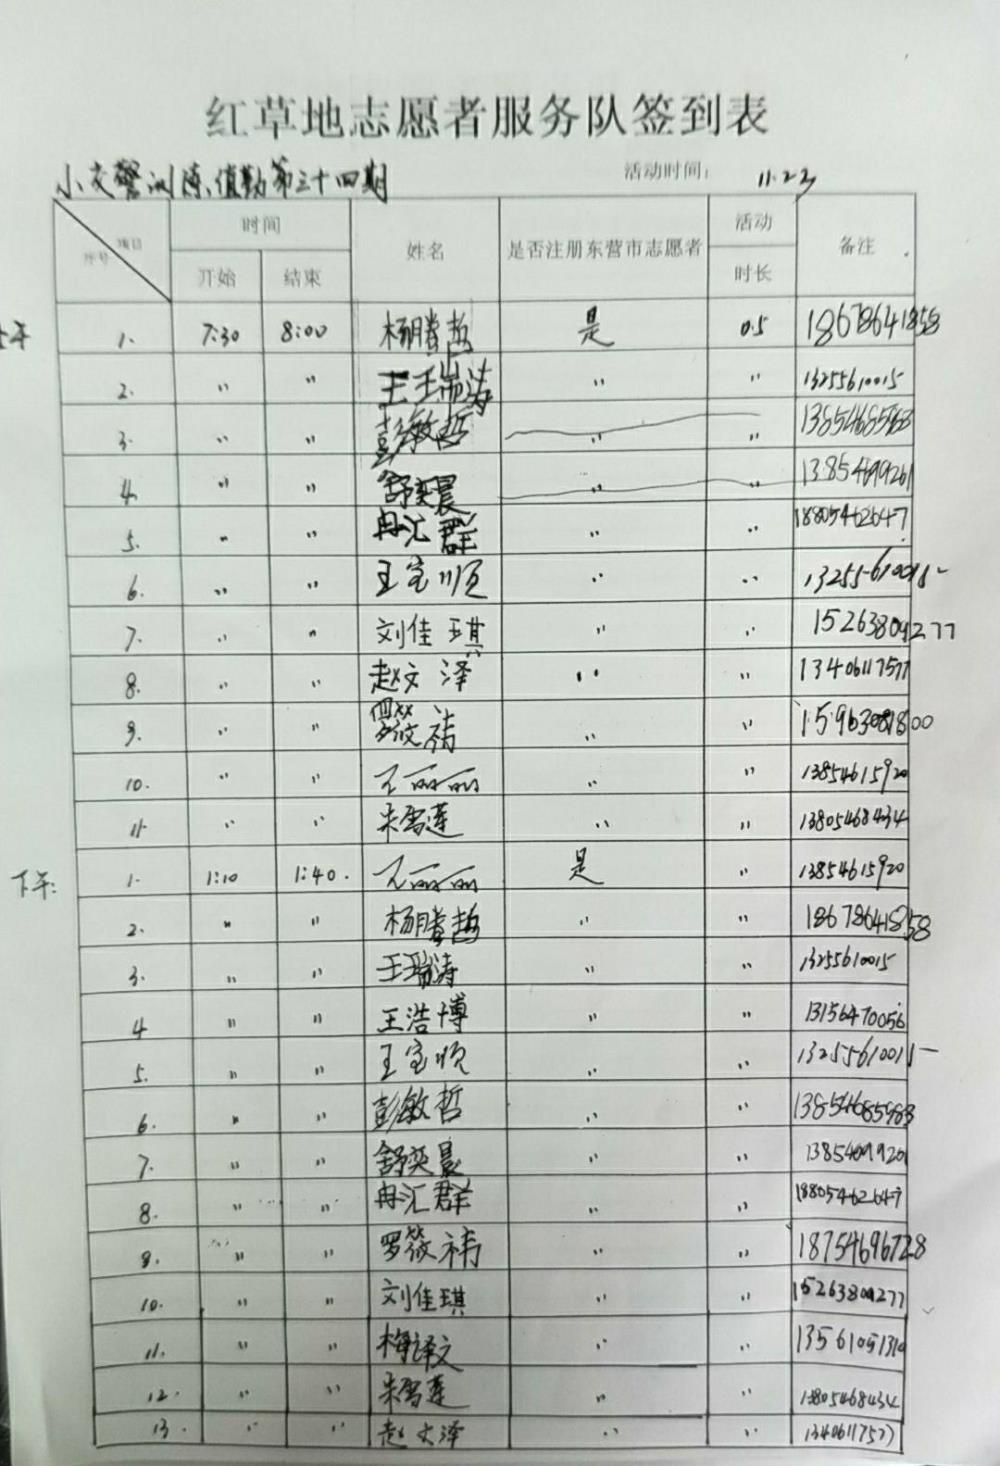 红草地志愿者服务队签到表
小交警训练、值勤第三十四期 活动时间: 11.23
项目 序号 时间 开始 结束 姓名 是否注册东营市志愿者 活动时长 备注
上午 1. 7:30 8:00 杨腾哲 是 0.5 18678641858
2. " " 王瑞涛 " " 13255610015
3. " " 彭敏哲 " "
4. " " 舒奕晨 " "
5. " " 冉汇群 " " 18805462647
6. " " 王宝顺 " " 13255610015
7. " " 刘佳琪 " " 15263809277
8. " " 赵文泽 " " 13406117577
9. " " 罗筱祎 " "
10. " " 王丽丽 " " 13854615920
11. " " 朱雪莲 " " 13805468434
下午: 1. 1:10 1:40. 王丽丽 是 " 13854615920
2. " " 杨腾哲 " " 18678641858
3. " " 王瑞涛 " " 13255610015
4 " " 王浩博 " " 13156470056
5. " " 王宝顺 " " 13255610015
6. " " 彭敏哲 " " 13854685983
7. " " 舒奕晨 " "
8. " " 冉汇群 " " 18805462647
9. " " 罗筱祎 " " 18754696728
10. " " 刘佳琪 " " 15263809277
11. " " 梅译文 " " 13561051310
12. " " 朱雪莲 " " 13805468434
13. " " 赵文泽 " " 13406117577